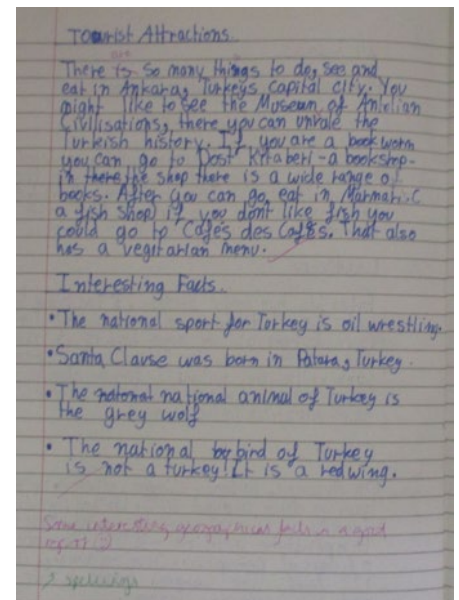 Tourist Attractions
There is are so many things to do, see and
eat in Ankara, Turkeys capital city. You
might like to see the Museum of Antolian
Civilisations, there you can unvale the
Turkish history. If you are a book worm
you can go to Dost Kitaberi - a bookshop.
in there the shop there is a wide range of
books. After you can go eat in Marmaric
a fish shop if you dont like fish you
could go to Cafés des Cafés. That also
has a vegitarian menu.
Interesting Facts.
• The national sport for Turkey is oil wrestling.
• Santa Clause was born in Patara, Turkey.
• The natonal national animal of Turkey is
the grey wolf
• The national by bird of Turkey
is not a turkey! It is a redwing.
Some interesting geographical facts in a good
spellings